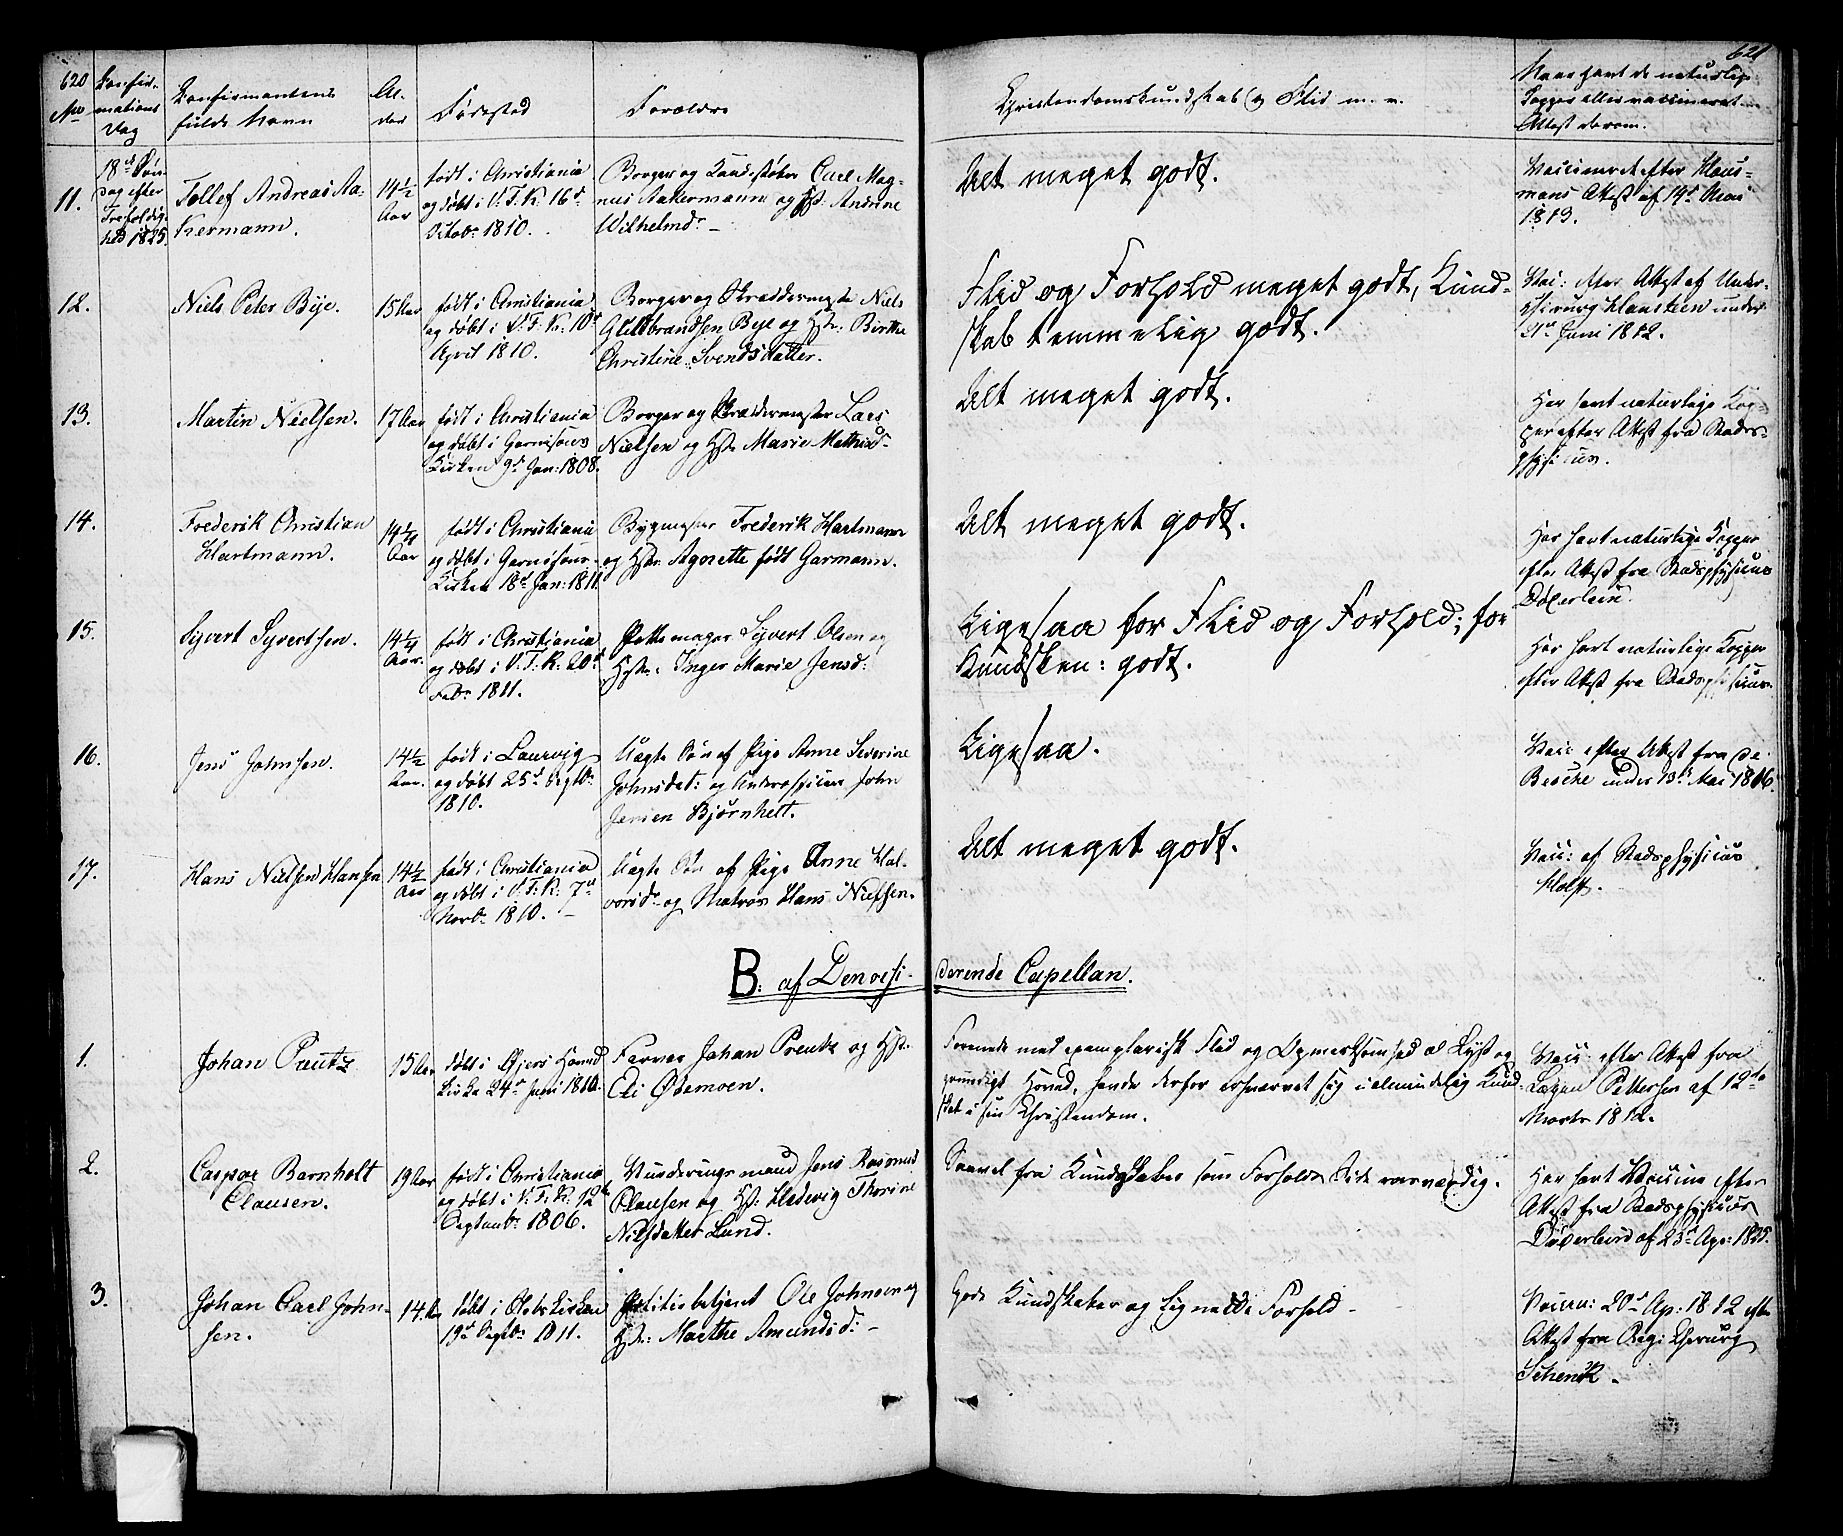 620
No
Confir-
mations
Dag
Confirmantens
fulde Navn
Al-
der
Födested
Forældre
Christendomskundskab og Flid m. v.
621
Naar havt de naturlige
Kopper eller vaccineret
Attest derom.
11.
18de Søn-
dag efter
Trefoldig-
hed 1825.
Tollef Andreas Aa-
kermann.
14½
Aar
født i Christiania
og døbt i V. F. K. 16d
Octobr 1810.
Borger og Kandestøber Carl Mag-
nus Aakermann og Hst. Andrine
Wilhelmdr
Alt meget godt.
Vaccineret efter Klaus-
mans Attest af 14d Mai
1819.
12.
Niels Peter Bye.
15 Aar
født i Christiania
og døbt i V. F. K. 10d
April 1810.
Borger og Skræddermester Niels
Guldbrandsen Bye og Hst. Birthe
Christine Svendsdatter.
Flid og Forhold meget godt, Kund-
skab temmelig godt.
Vac: efter Attest af Under-
chirurg Klausteen under
21d Juni 1812.
13.
Martin Nielsen.
17 Aar
født i Christiania
og døbt i Garnisons
Kirken 9d Jan: 1808.
Borger og Skræddermester Lars
Nielsen og Hst. Marie Mathisd
Alt meget godt.
Har havt naturlige Kop-
per efter Attest fra Stads-
physicus.
14.
Frederik Christian
Hartmann.
14¼
Aar
født i Christiania
og døbt i Garnisons-
Kirken 18d Jan: 1811.
Bygmester Frederik Hartmann
og Hst. Agnette født Garmann.
Alt meget godt.
Har havt naturlige Kopper
efter Attest fra Stadsphysicus
Døderlein.
15.
Syvert Syvertsen.
14¼
Aar.
født i Christiania
og døbt i V. F. K. 20d
Febr 1811.
Pottemager Syvert Olsen og
Hst. Inger Marie Jensd:
Ligesaa for Flid og Forhold; for
Kundsken: godt.
Har havt naturlige Kopper
efter Attest fra Stadsphysicus.
16.
Jens Johnsen.
14½
Aar.
født i Laurvig
og døbt 25d Septbr
1810.
Uægte Søn af Pige Anne Severine
Johnsdat: og Underofficier John
Jensen Bjørnholt.
Ligesaa.
Vacc efter Attest fra De
Besche under 13de Mai 1816.
17.
Hans Nielsen Hansen
14½
Aar
født i Christiania
og døbt i V. F. K. 7d
Novbr 1810.
Uægte Søn af Pige Anne Hal-
vorsdr og Matros Hans Nielsen.
Alt meget godt.
Vacc: af Stadsphysicus
Holst.
B. af Den resi-
derende Capellan.
1.
Johan Prutz
15 Aar
døbt i Eyers Hoved
Kirke 24d Juni 1810.
Farver Johan Preutz og Hst.
Eli Østmoen.
Forenede med exemplarisk Flid og Opmerksomhed al Lyst og
grundigt Hoved, havde derfor erhvervet sig ualmindelig Kund-
skab i sin Christendom.
Vacc: efter Attest fra
Lægen Pettersen af 12te
Marts 1812.
2.
Caspar Barnholt
Clausen.
19 Aar
født i Christiania
og døbt i V. F. K. 12te
Septembr 1806.
Vurderingsmand Jens Rasmus
Clausen og Hst. Hedevig Thorine
Nilsdatter Lund.
Saavel fra Kundskabers som Forholds Side roesværdig.
Har havt Vaccine efter
Attest fra Stadsphysicus
Døderlein af 23d Apr: 1825.
3.
Johan Carl John-
sen.
14 Aar
døbt i Oslo Kirken
19d Septbr 1811.
Politiebetjent Ole Johnsen og
Hst: Marthe Amundsd:
Gode Kundskaber og lignende Forhold
Vaccin: 20d Ap: 1812 efter
Attest fra Reg: Chirurg
Schenck